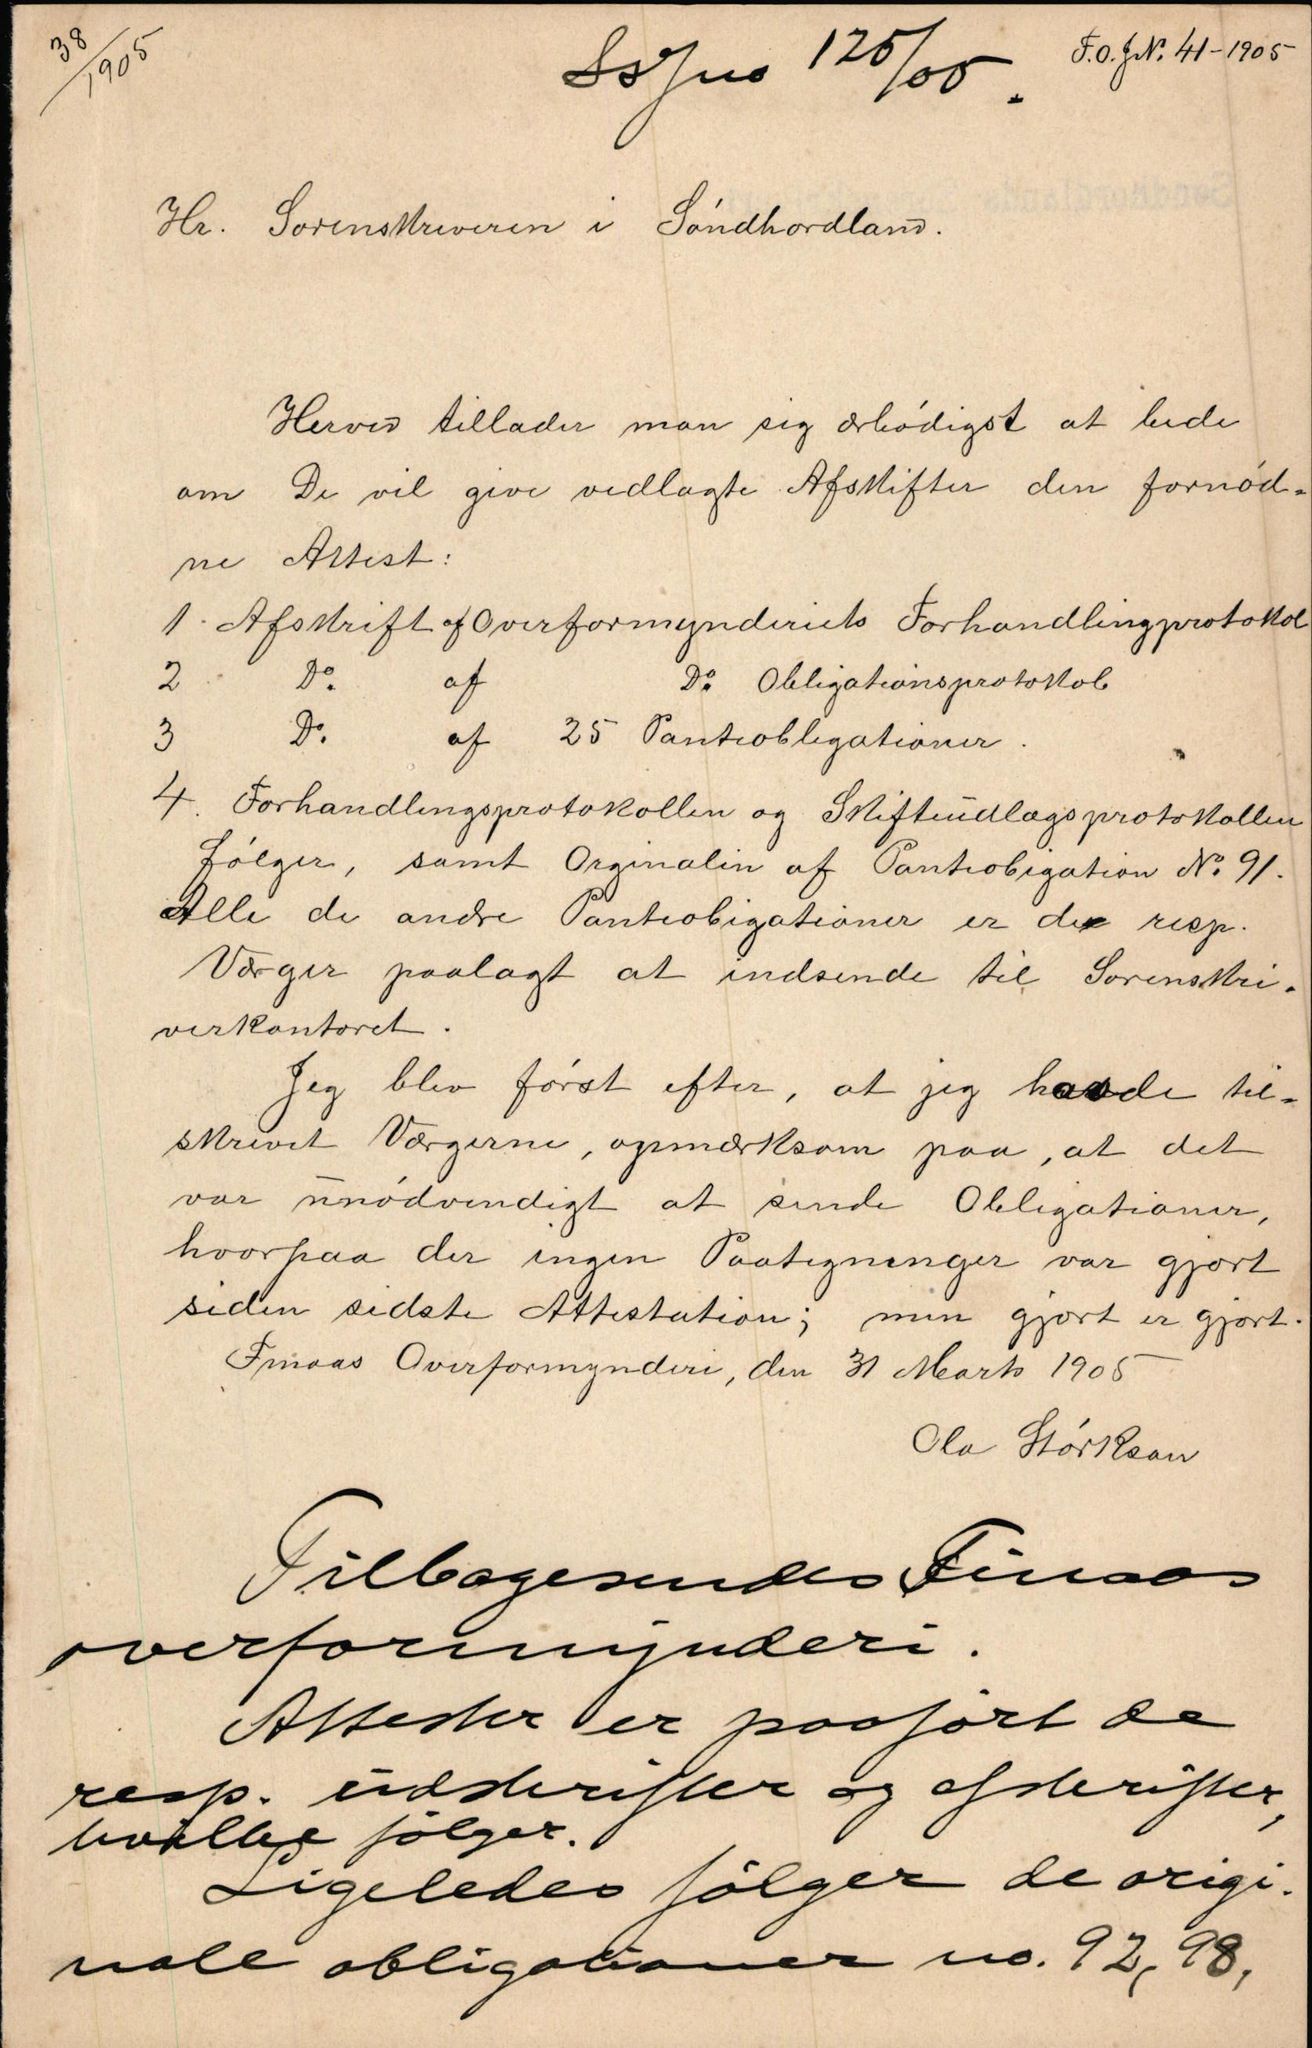 38/1905
Ssjno 125/05.
F.O.JN. 41-1905
Hr. Sorenskriveren i Söndhordland.
Herved tillader man sig ærbödigst at bede
om De vil give vedlagte Afskifter den fornöd-
ne Attest:
1. Afskrift af Overformynderiets Forhandlingprotokol
2 Do. af Do. Obligationsprotokol
3 Do. af 25 Panteobligationer.
4. Forhandlingsprotokollen og Skifteudlægsprotokollen
fölger, samt Orginalin af Panteobigation No. 91.
Alle de andre Panteobigationer er de resp.
Værger paalagt at indsende til Sorenskri-
verkontoret.
Jeg blev först efter, at jeg havde til-
skrevet Værgerne, opmærksom paa, at det
var unödvendigt at sende Obligationer,
hvorpaa der ingen Paategninger var gjort
siden sidste Attestation; men gjort er gjort.
Finaas Overformynderi, den 31 Marts 1905
Ola Störkson
Tilbagesendes Finaas
overformynderi.
Attester er paaført de
resp. udskrifter og afskrifter,
hvilke fölger.
Ligeledes fölger de origi-
nale obligationer no. 92, 98,